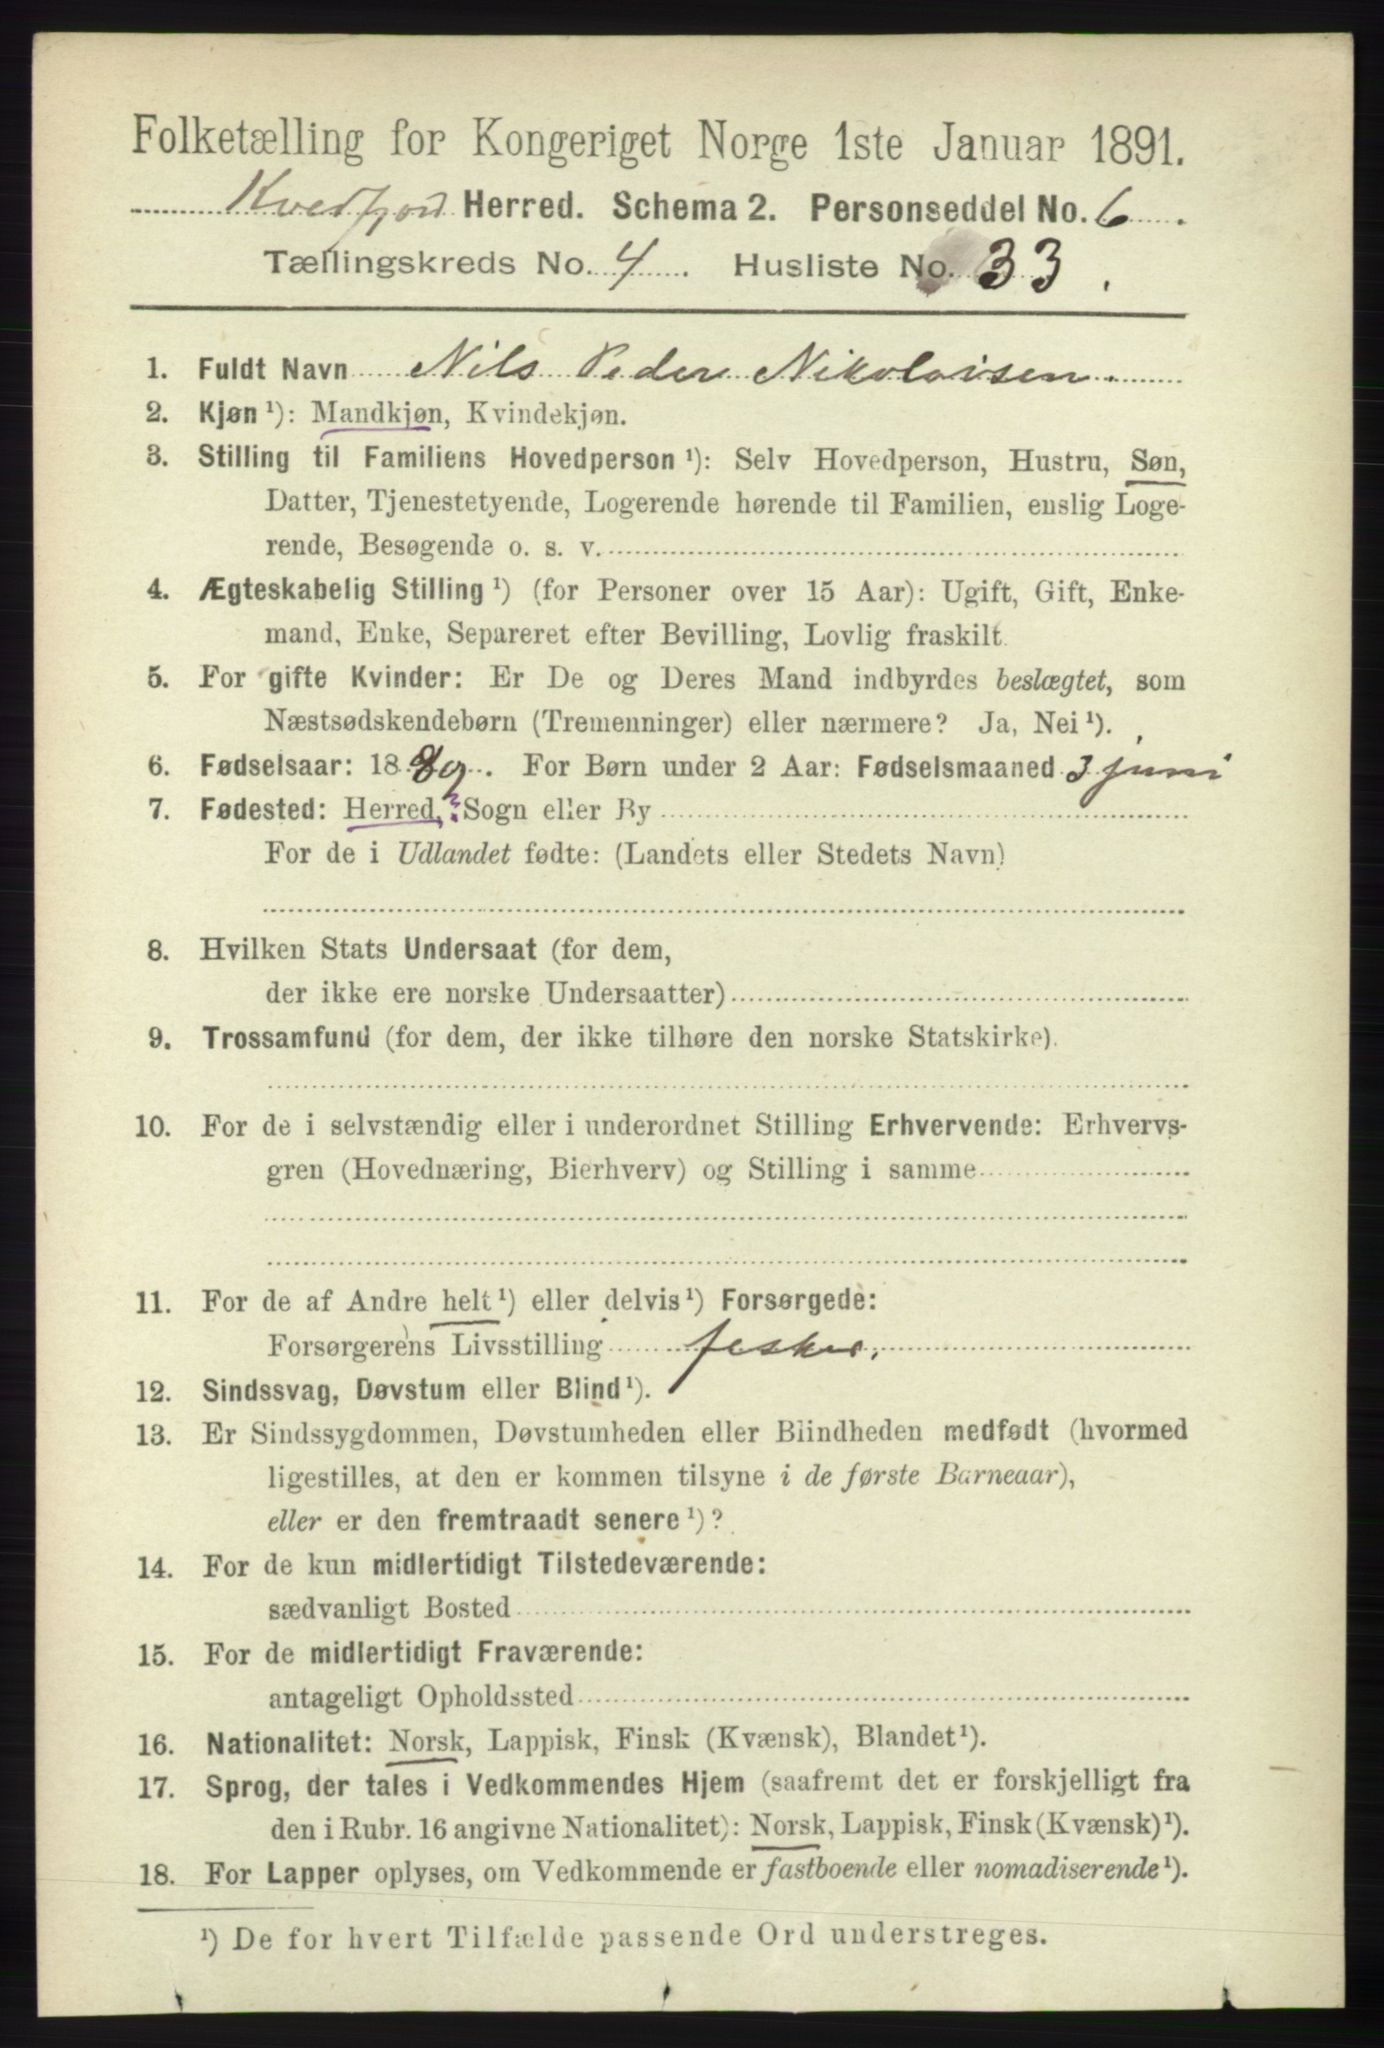 Folketælling for Kongeriget Norge 1ste Januar 1891.
Kvedfjord Herred. Schema 2. Personseddel No. 6.
Tællingskreds No. 4. Husliste No. 33.
1. Fuldt Navn Nils Peder Nikolaisen.
2. Kjøn ¹): Mandkjøn, Kvindekjøn.
3. Stilling til Familiens Hovedperson ¹): Selv Hovedperson, Hustru, Søn,
Datter, Tjenestetyende, Logerende hørende til Familien, enslig Loge-
rende, Besøgende o. s. v.
4. Ægteskabelig Stilling ¹) (for Personer over 15 Aar): Ugift, Gift, Enke-
mand, Enke, Separeret efter Bevilling, Lovlig fraskilt.
5. For gifte Kvinder: Er De og Deres Mand indbyrdes beslægtet, som
Næstsødskendebørn (Tremenninger) eller nærmere? Ja, Nei ¹).
6. Fødselsaar: 1889. For Børn under 2 Aar: Fødselsmaaned 3 juni
7. Fødested: Herred, ? Sogn eller By
For de i Udlandet fødte: (Landets eller Stedets Navn)
8. Hvilken Stats Undersaat (for dem,
der ikke ere norske Undersaatter)
9. Trossamfund (for dem, der ikke tilhøre den norske Statskirke).
10. For de i selvstændig eller i underordnet Stilling Erhvervende: Erhvervs-
gren (Hovednæring, Bierhverv) og Stilling i samme
11. For de af Andre helt ¹) eller delvis ¹) Forsørgede:
Forsørgerens Livsstilling fesker.
12. Sindssvag, Døvstum eller Blind ¹).
13. Er Sindssygdommen, Døvstumheden eller Blindheden medfødt (hvormed
ligestilles, at den er kommen tilsyne i de første Barneaar),
eller er den fremtraadt senere ¹)?
14. For de kun midlertidigt Tilstedeværende:
sædvanligt Bosted
15. For de midlertidigt Fraværende:
antageligt Opholdssted
16. Nationalitet: Norsk, Lappisk, Finsk (Kvænsk), Blandet ¹).
17. Sprog, der tales i Vedkommendes Hjem (saafremt det er forskjelligt fra
den i Rubr. 16 angivne Nationalitet): Norsk, Lappisk, Finsk (Kvænsk) ¹).
18. For Lapper oplyses, om Vedkommende er fastboende eller nomadiserende ¹).
¹) De for hvert Tilfælde passende Ord understreges.